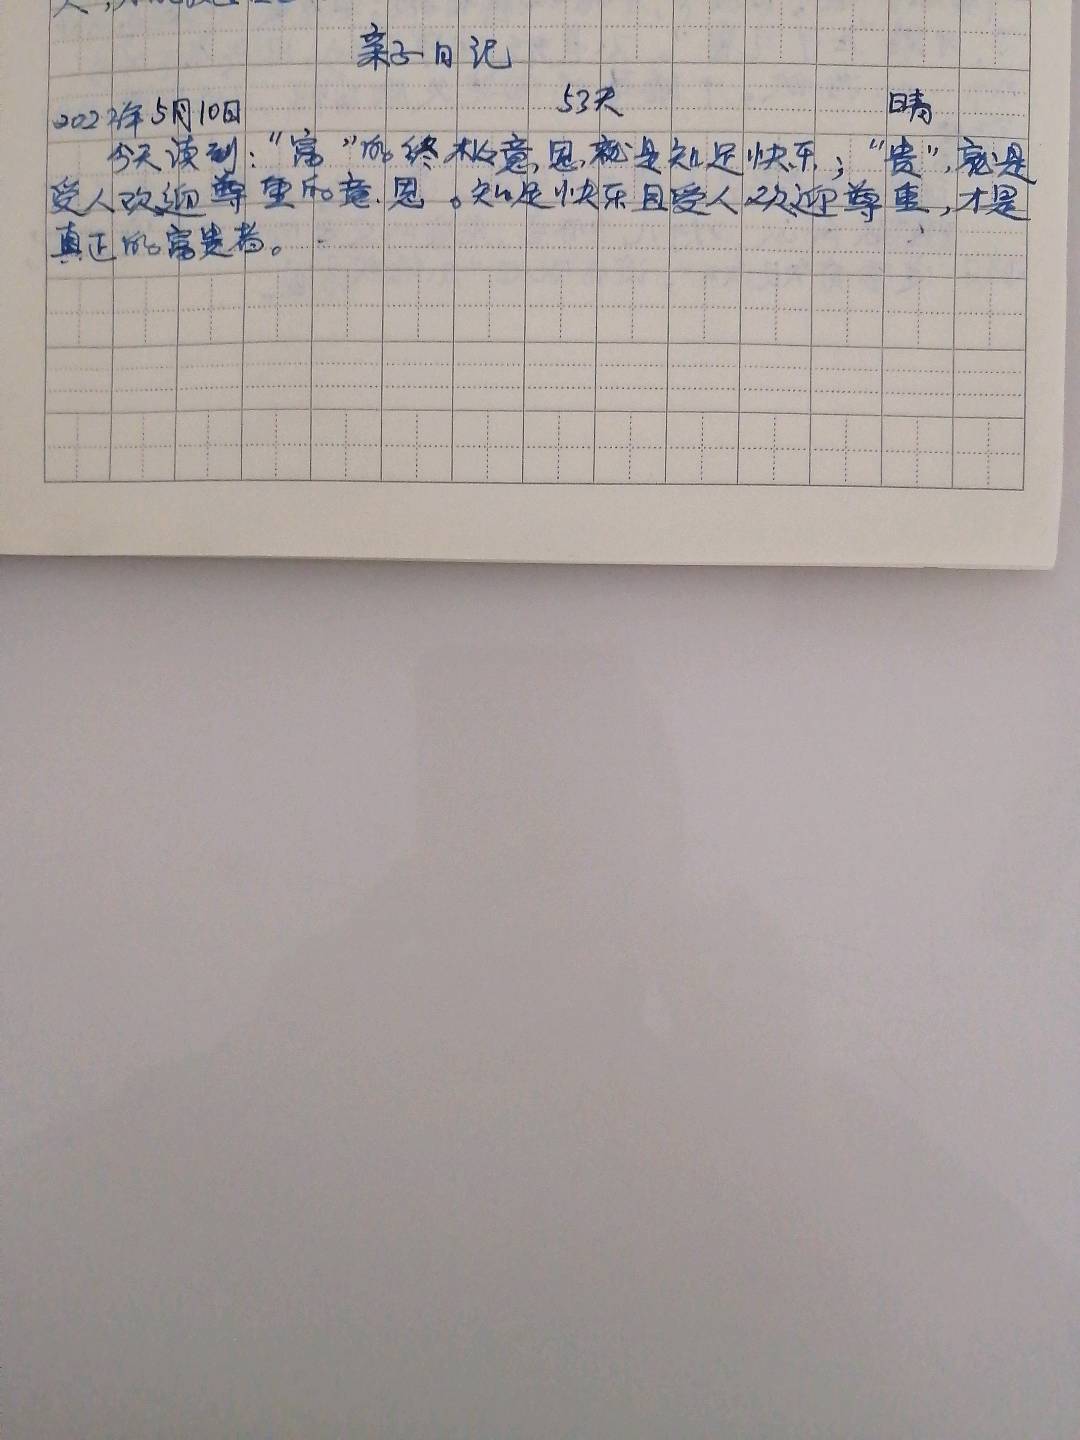 亲子日记
2022年5月10日 53天 晴
今天读到："富"的终极意思,就是知足快乐；"贵",就是
受人欢迎尊重的意思。知足快乐且受人欢迎尊重,才是
真正的富贵者。